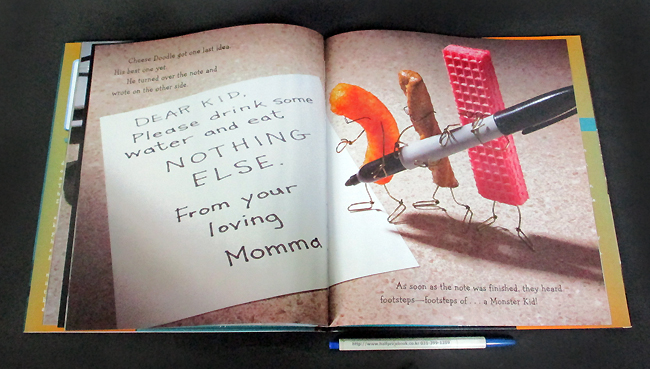 Cheese Doodle got one last idea.
His best one yet.
He turned over the note and
wrote on the other side.
DEAR KID,
Please drink some
water and eat
NOTHING
ELSE.
From your
loving
Momma
As soon as the note was finished, they heard
footsteps—footsteps of . . . a Monster Kid!